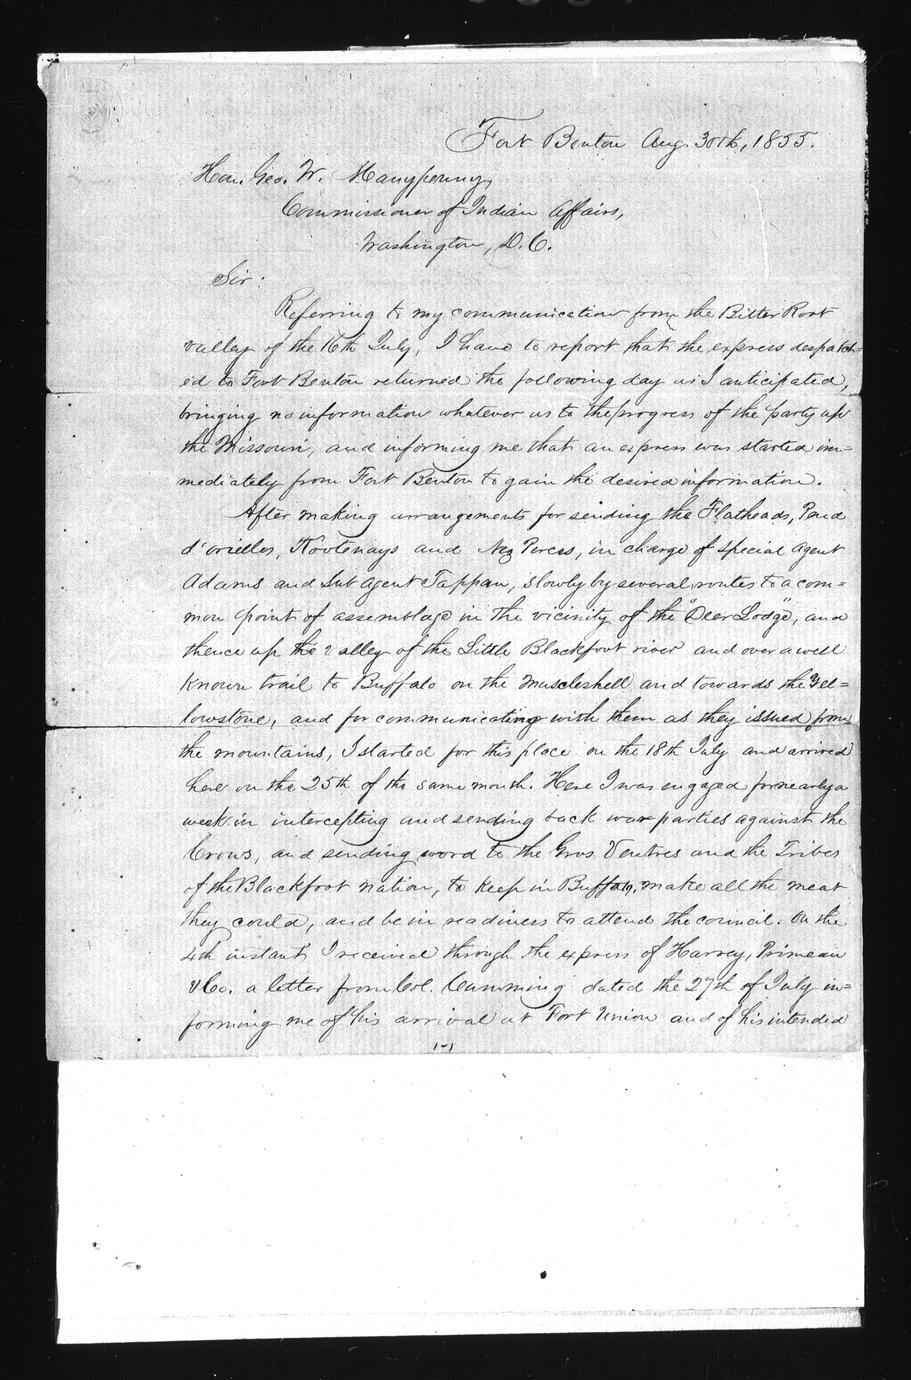 Fort Benton Aug. 30th, 1855.
Hon. Geo. W. Manypenny,
Commissioner of Indian Affairs,
Washington, D.C.
Sir:
Referring to my communication from the Bitter Root
valley of the 16th July, I have to report that the express despatch-
ed to Fort Benton returned the following day as I anticipated,
bringing no information whatever as to the progress of the party up
the Missouri, and informing me that an express was started im-
mediately from Fort Benton to gain the desired information.
After making arrangements for sending the Flatheads, Pend
d'orielles, Kootenays and Nez Perces, in charge of special agent
Adams and Sub agent Tappan, slowly by several routes to a com-
mon point of assemblage in the vicinity of the "Deer Lodge", and
thence up the valley of the Little Blackfoot river and over a well
known trail to Buffalo on the Muscleshell and towards the Yel-
lowstone, and for communicating with them as they issued from
the mountains, I started for this place on the 18th July and arrived
here on the 25th of the same month. Here I was engaged for nearly a
week in intercepting and sending back war parties against the
Crows, and sending word to the Gros Ventres and the Tribes
of the Blackfoot nation, to keep in Buffalo, make all the meat
they could, and be in readiness to attend the council. On the
4th instant I received through the express of Harvey, Primeau
& Co. a letter from Col. Cumming dated the 27th of July in-
forming me of his arrival at Fort Union and of his intended
1-1